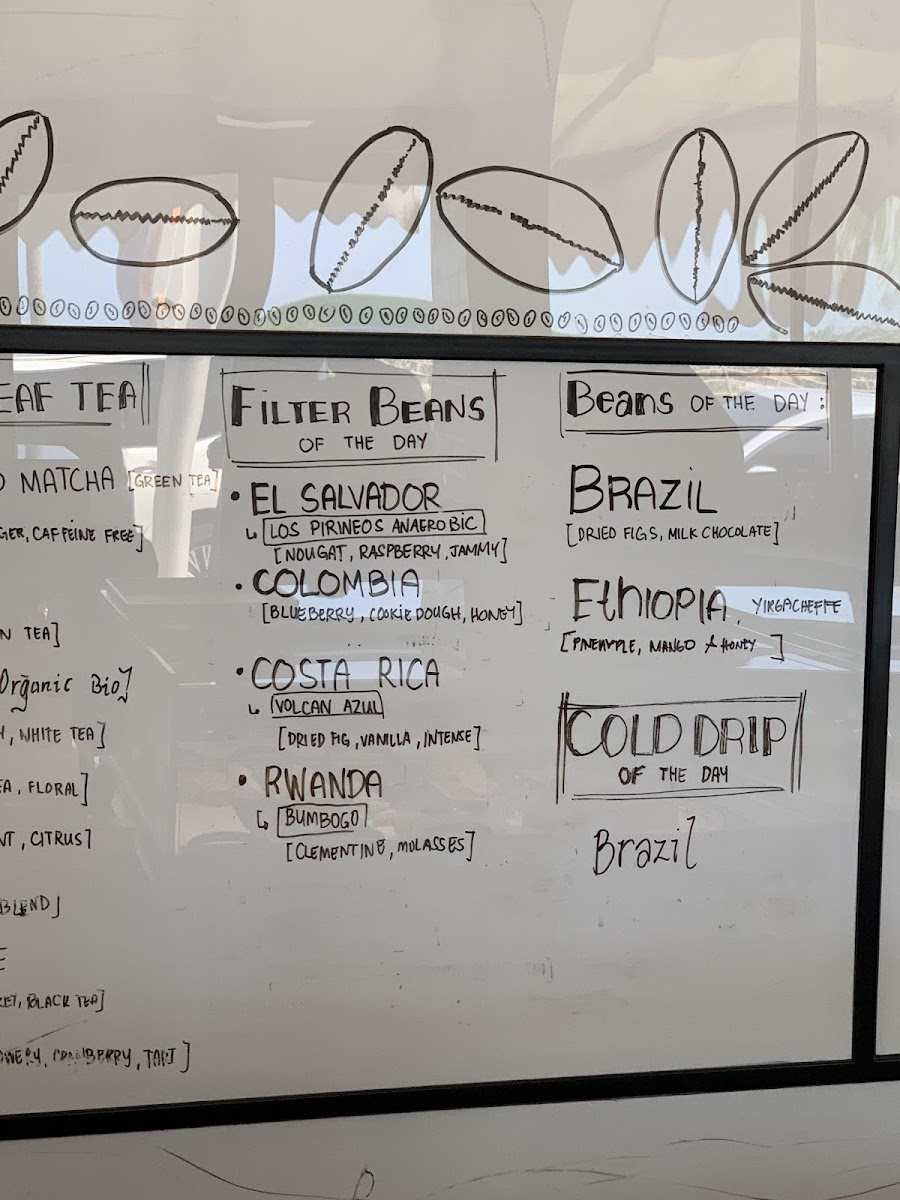 EAF TEA
MATCHA [GREEN TEA]
GER, CAFFEINE FREE]
N TEA]
Organic Bio]
, WHITE TEA]
EA, FLORAL]
NT, CITRUS]
BLEND]
E
RET, BLACK TEA]
OWERY, CRANBERRY, TART]
FILTER BEANS
OF THE DAY
• EL SALVADOR
↳ LOS PIRINEOS ANAEROBIC
[NOUGAT, RASPBERRY, JAMMY]
• COLOMBIA
[BLUEBERRY, COOKIE DOUGH, HONEY]
• COSTA RICA
↳ VOLCAN AZUL
[DRIED FIG, VANILLA, INTENSE]
• RWANDA
↳ BUMBOGO
[CLEMENTINE, MOLASSES]
Beans OF THE DAY:
BRAZIL
[DRIED FIGS, MILK CHOCOLATE]
EthIOPIA, YIRGACHEFFE
[PINEAPPLE, MANGO + HONEY]
COLD DRIP
OF THE DAY
Brazil